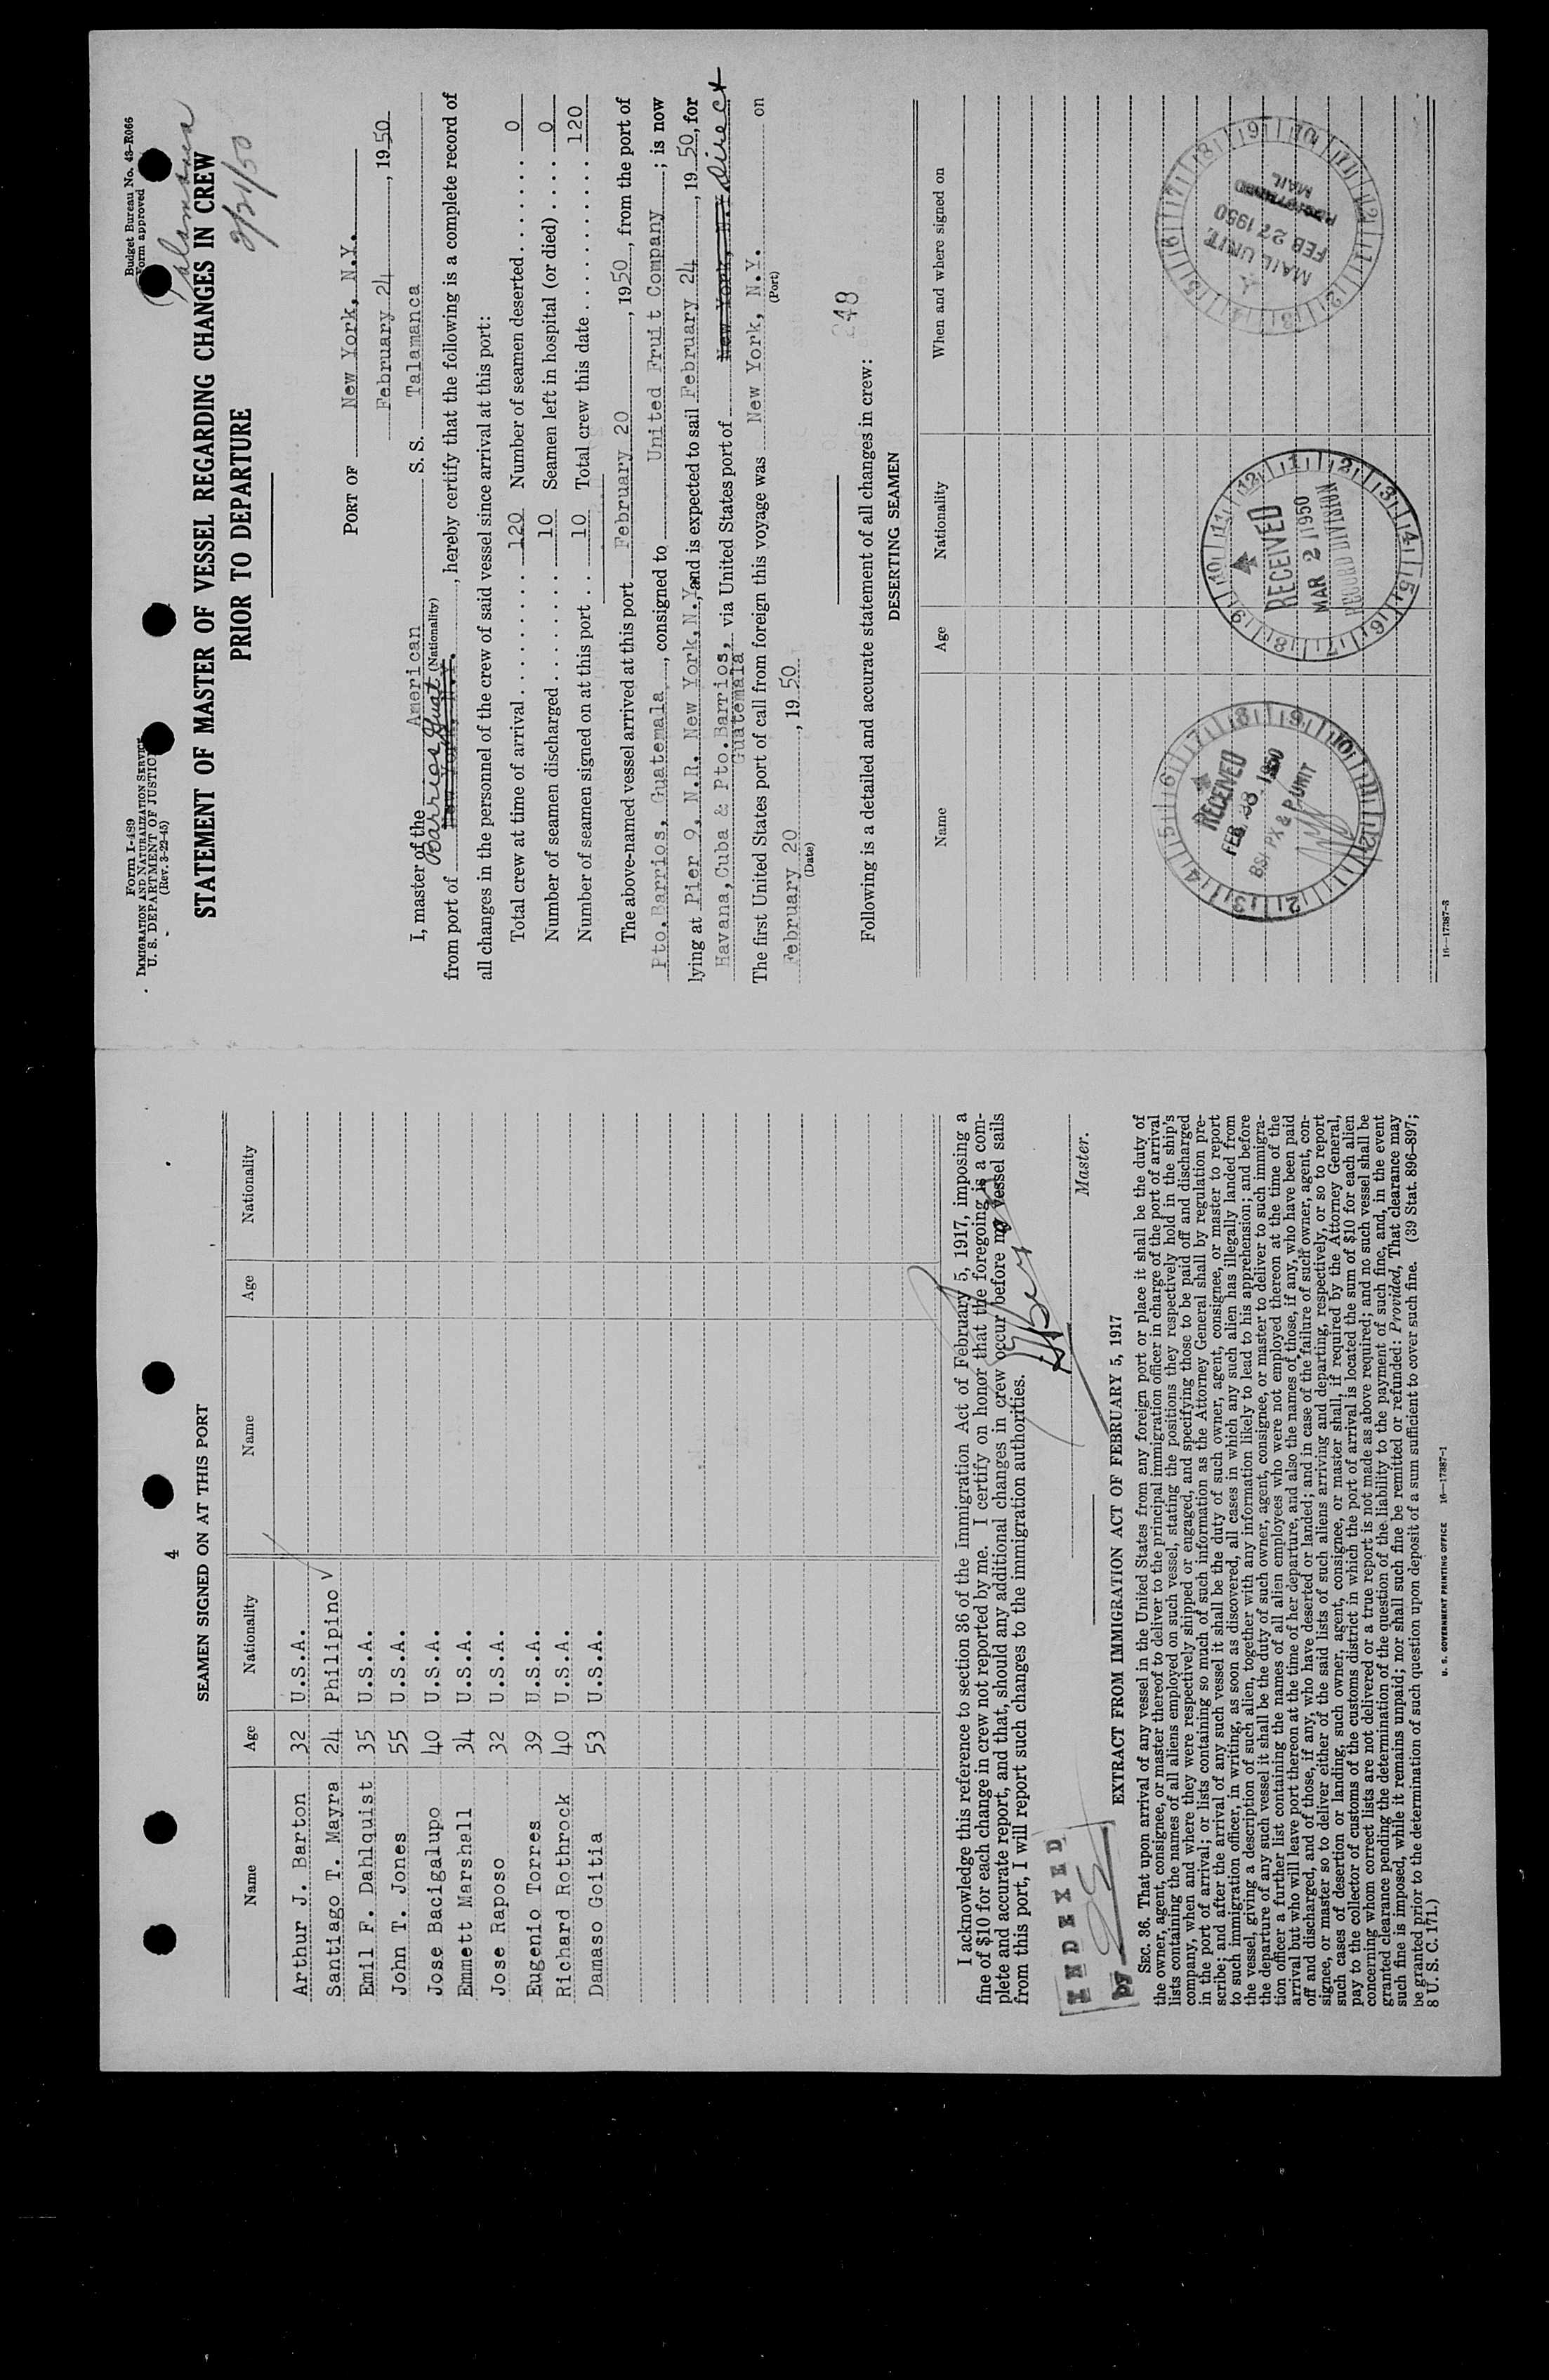 4
SEAMEN SIGNED ON AT THIS PORT
Name Age Nationality Name Age Nationality
Arthur J. Barton 32 U.S.A.
Santiago T. Mayra 24 Philipino √
Emil F. Dahlquist 35 U.S.A.
John T. Jones 55 U.S.A.
Jose Bacigalupo 40 U.S.A.
Emmett Marshall 34 U.S.A.
Jose Raposo 32 U.S.A.
Eugenio Torres 39 U.S.A.
Richard Rothrock 40 U.S.A.
Damaso Goitia 53 U.S.A.
I acknowledge this reference to section 36 of the Immigration Act of February 5, 1917, imposing a
fine of $10 for each change in crew not reported by me. I certify on honor that the foregoing is a com-
plete and accurate report, and that, should any additional changes in crew occur before my vessel sails
from this port, I will report such changes to the immigration authorities.
Master.
INDEXED
by
EXTRACT FROM IMMIGRATION ACT OF FEBRUARY 5, 1917
SEC. 36. That upon arrival of any vessel in the United States from any foreign port or place it shall be the duty of
the owner, agent, consignee, or master thereof to deliver to the principal immigration officer in charge of the port of arrival
lists containing the names of all aliens employed on such vessel, stating the positions they respectively hold in the ship's
company, when and where they were respectively shipped or engaged, and specifying those to be paid off and discharged
in the port of arrival; or lists containing so much of such information as the Attorney General shall by regulation pre-
scribe; and after the arrival of any such vessel it shall be the duty of such owner, agent, consignee, or master to report
to such immigration officer, in writing, as soon as discovered, all cases in which any such alien has illegally landed from
the vessel, giving a description of such alien, together with any information likely to lead to his apprehension; and before
the departure of any such vessel it shall be the duty of such owner, agent, consignee, or master to deliver to such immigra-
tion officer a further list containing the names of all alien employees who were not employed thereon at the time of the
arrival but who will leave port thereon at the time of her departure, and also the names of those, if any, who have been paid
off and discharged, and of those, if any, who have deserted or landed; and in case of the failure of such owner, agent, con-
signee, or master so to deliver either of the said lists of such aliens arriving and departing, respectively, or so to report
such cases of desertion or landing, such owner, agent, consignee, or master shall, if required by the Attorney General,
pay to the collector of customs of the customs district in which the port of arrival is located the sum of $10 for each alien
concerning whom correct lists are not delivered or a true report is not made as above required; and no such vessel shall be
granted clearance pending the determination of the question of the liability to the payment of such fine, and, in the event
such fine is imposed, while it remains unpaid; nor shall such fine be remitted or refunded: Provided, That clearance may
be granted prior to the determination of such question upon deposit of a sum sufficient to cover such fine. (39 Stat. 896–897;
8 U. S. C. 171.)
U. S. GOVERNMENT PRINTING OFFICE 16—17387-1
Form I-489
IMMIGRATION AND NATURALIZATION SERVICE
U. S. DEPARTMENT OF JUSTICE
(Rev. 3-22-45)
Budget Bureau No. 43-R066
Form approved
Talamanca
2/24/50
STATEMENT OF MASTER OF VESSEL REGARDING CHANGES IN CREW
PRIOR TO DEPARTURE
PORT OF New York, N.Y.
February 24, 1950
I, master of the American S. S. Talamanca
(Nationality)
from port of Barrios Guat New York, N.Y., hereby certify that the following is a complete record of
all changes in the personnel of the crew of said vessel since arrival at this port:
Total crew at time of arrival 120 Number of seamen deserted 0
Number of seamen discharged 10 Seamen left in hospital (or died) 0
Number of seamen signed on at this port 10 Total crew this date 120
The above-named vessel arrived at this port February 20, 1950, from the port of
Pto. Barrios, Guatemala, consigned to United Fruit Company; is now
lying at Pier 9, N.R. New York, N.Y. and is expected to sail February 24, 1950, for
Havana, Cuba & Pto. Barrios, Guatemala via United States port of New York, N.Y. Direct
The first United States port of call from foreign this voyage was New York, N.Y. on
(Port)
February 20, 1950
(Date)
248
Following is a detailed and accurate statement of all changes in crew:
DESERTING SEAMEN
Name Age Nationality When and where signed on
RECEIVED
FEB 28 1950
BSI PX & P UNIT
RECEIVED
MAR 2 1950
RECORD DIVISION
MAIL UNIT
FEB 27 1950
MAIL
16—17387-3